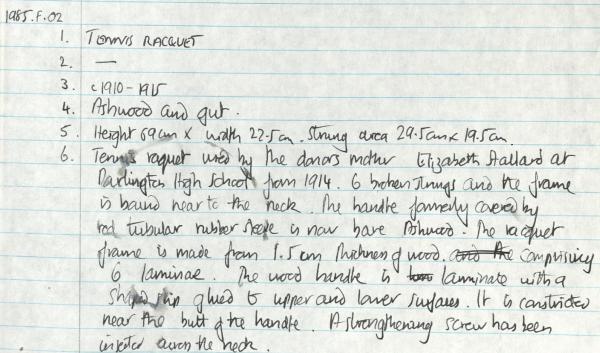 1985.F.02
1. TENNIS RACQUET
2. —
3. c1910-1915
4. Ashwood and gut.
5. Height 69cm x width 22.5cm. Strung area 29.5cm x 19.5cm.
6. Tennis raquet used by the donors mother Elizabeth Stallard at
Darlington High School from 1914. 6 broken strings and the frame
is bound near to the neck. The handle formerly covered by
red tubular rubber sleeve is now bare Ashwood. The racquet
frame is made from 1.5cm thickness of wood. and the comprising
6 laminae. The wood handle is laminate with a
shaped slip glued to upper and lower surfaces. It is constricted
near the butt of the handle. A strengthening screw has been
inserted across the neck.